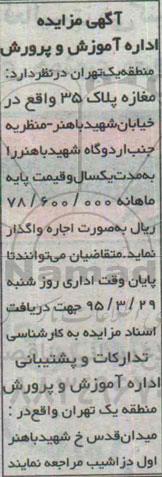 آگهی مزایده
اداره آموزش و پرورش
منطقه یک تهران در نظر دارد:
مغازه پلاک ۳۵ واقع در
خیابان شهید باهنر-منظریه
جنب اردوگاه شهید باهنر را
به مدت یکسال و قیمت پایه
ماهانه ۷۸/۶۰۰/۰۰۰
ریال به صورت اجاره واگذار
نماید. متقاضیان می توانند تا
پایان وقت اداری روز شنبه
۹۵/۳/۲۹ جهت دریافت
اسناد مزایده به کارشناسی
تدارکات و پشتیبانی
اداره آموزش و پرورش
منطقه یک تهران واقع در :
میدان قدس خ شهید باهنر
اول دزاشیب مراجعه نمایند